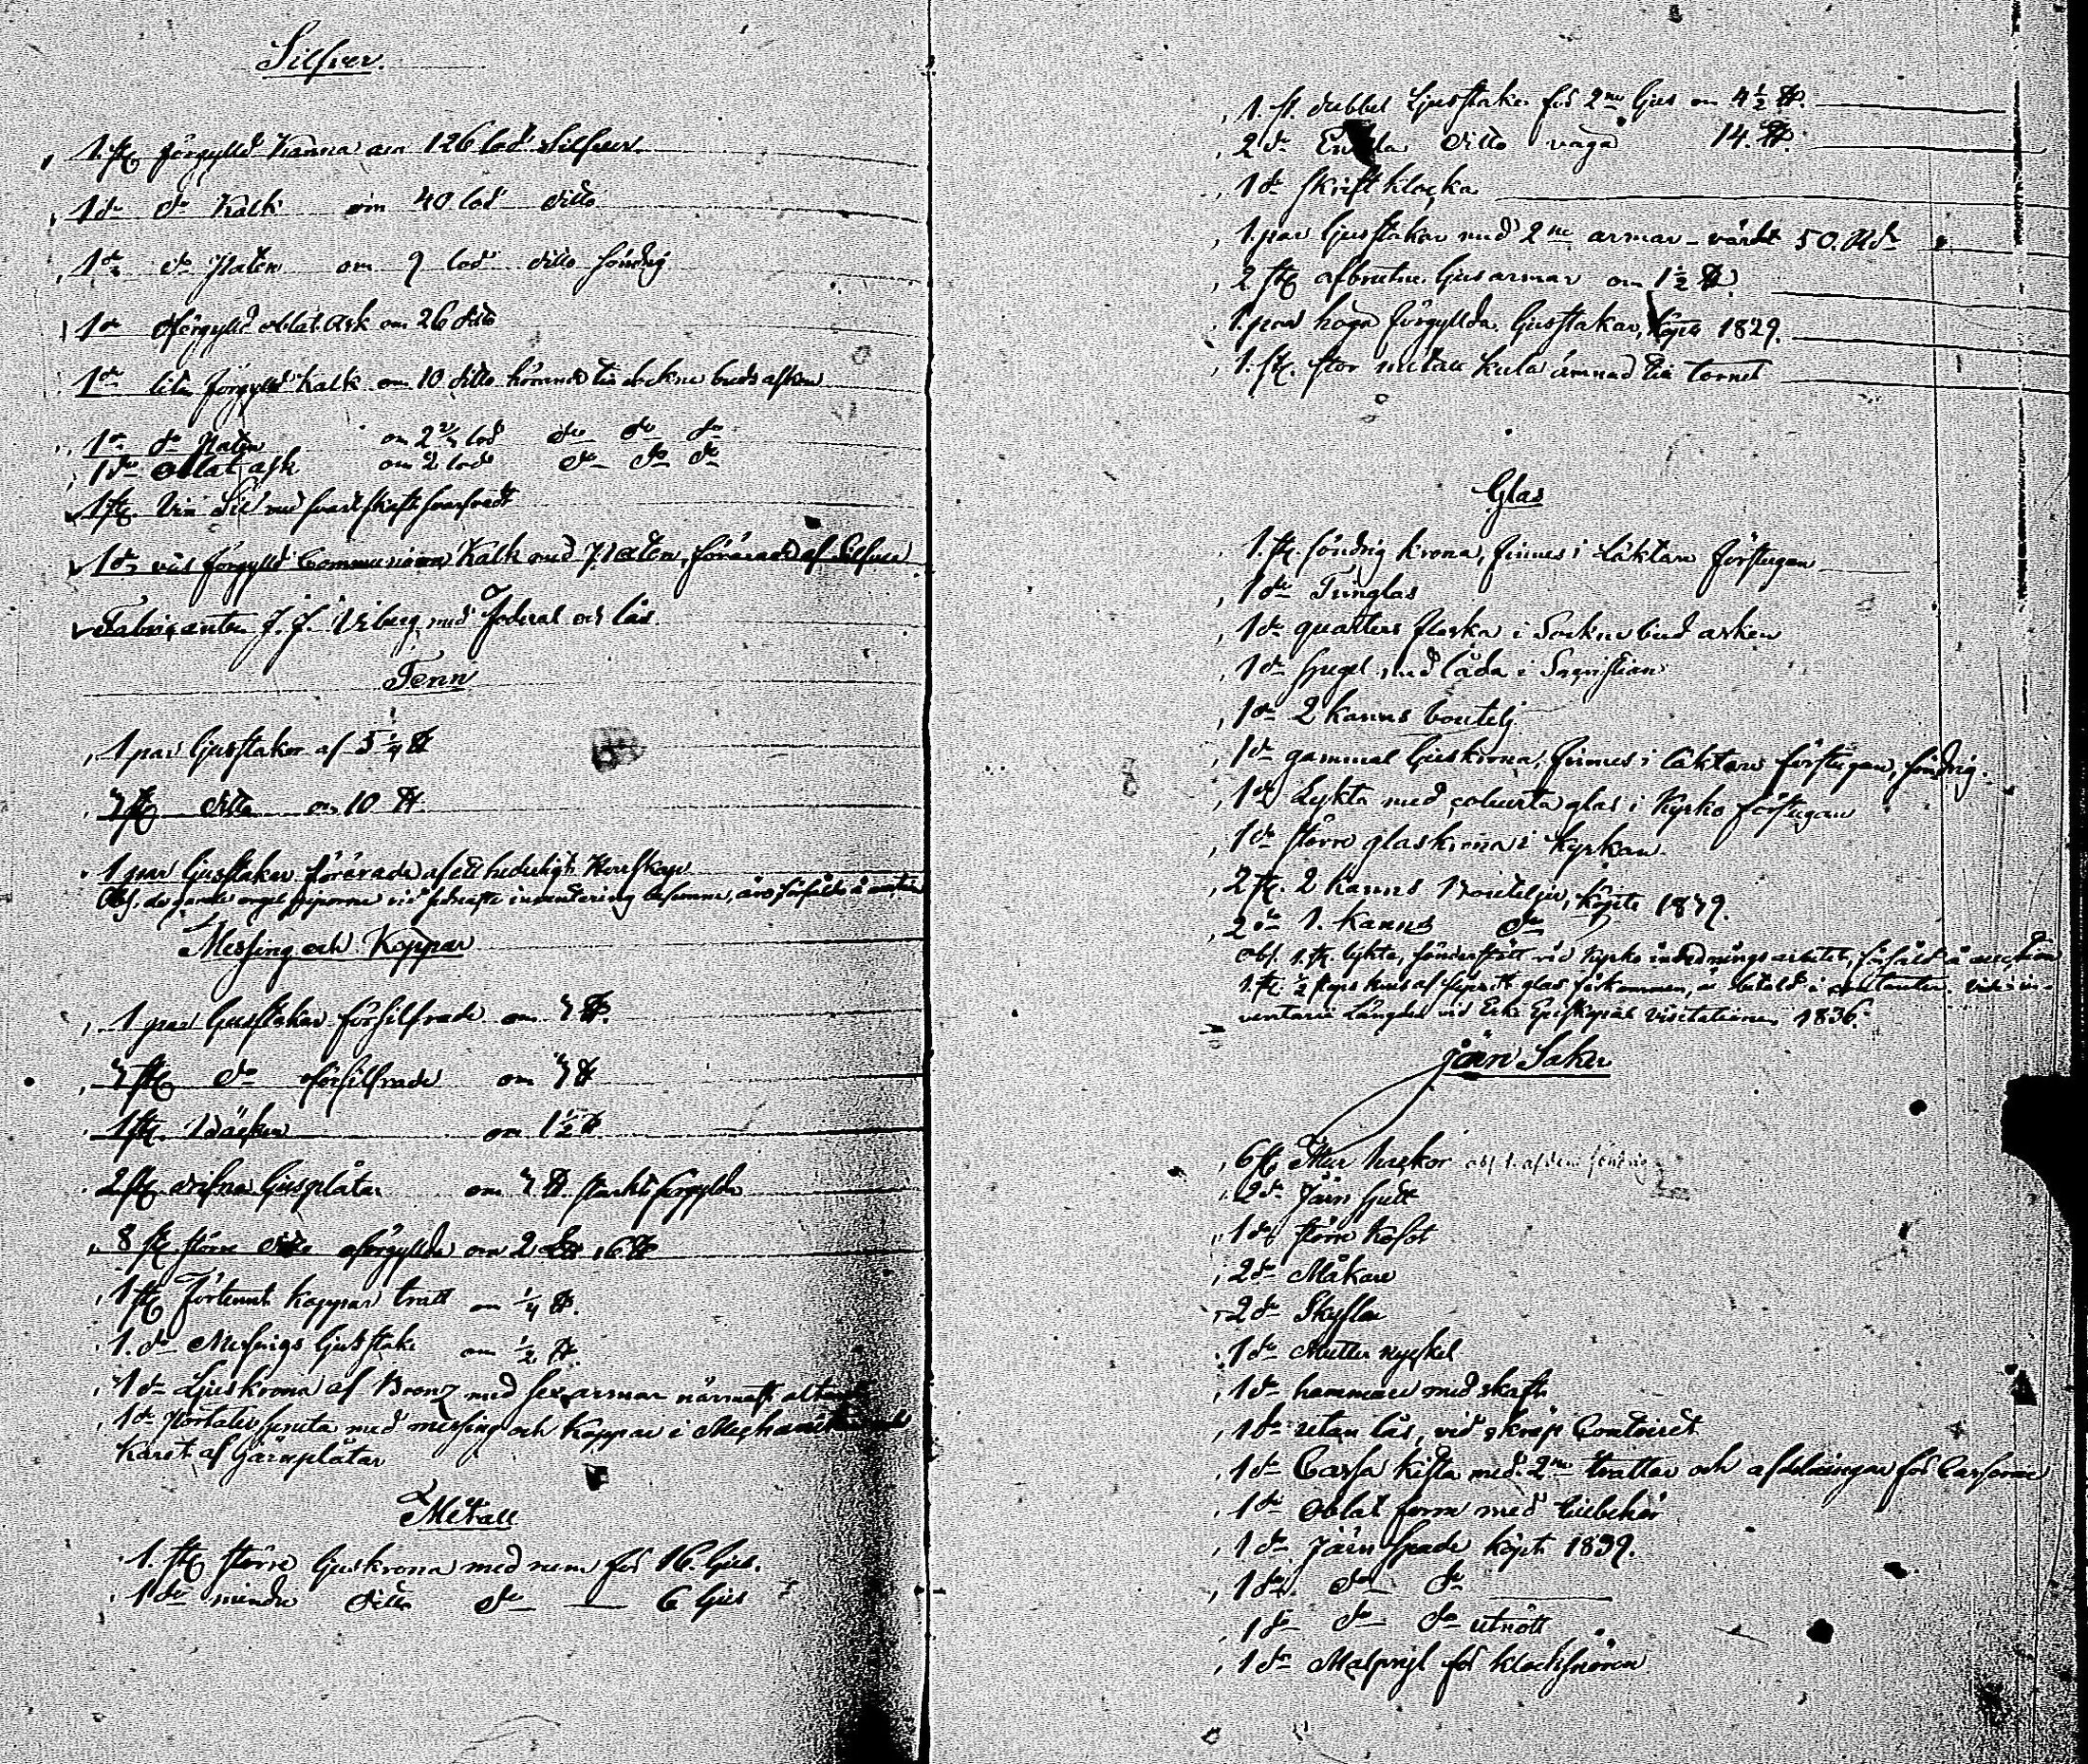 Silfver.
1. st. förgylld Kanna om 126 lod Silfver.
1 do do Kalk om 40 lod ditto
1 do do Paten om 9 lod ditto söndrig
1 do oförgylld oblat Ask om 26 ditto
1 do liten förgylld Kalk om 10 ditto hörande till sockne buds asken
1 do do Paten om 2 lod do do do
1 do oblat ask om 2 lod do do do
1 st. Vin Sil med svart skaft
1 do förgylld Communion Kalk med Paten, förärad af Silfver
Fabriqanten J. J. Viberg med Foderal och lås.
Tenn
1 par ljusstakar af 5 1/4 ℔
st ditto om 10 ℔
1 par ljusstakar förärade af ett hederligt Herrskap
Obs. de gamla orgel piporna vid sednaste inventering
Messing och Koppar
1 par ljusstakar försilfrade om ℔.
st do oförsilfrade om ℔
1 st. Bäcken om 1 1/2 ℔
2 st. drifna ljusplåtar om ℔ förgyllda
8 st. större ditto oförgyllda om 2 L℔ 16 ℔
1 st Förtennt koppar tratt om 1/4 ℔.
1. do Messings ljusstake om 1/2 ℔.
1 do Ljuskrona af Bronz med sex armar närmast altaret
1 do med messing och koppar i
karet af Järnplåtar
Metall
1. st större ljuskrona med rum för 16. ljus.
1 do mindre ditto do — 6 ljus
1. st. dubbel Ljusstake för 2ne ljus om 4 1/2 ℔.
2 do Enkla ditto väga 14. ℔.
1 do skrift klocka
1. par ljusstakar med 2ne armar – värdt 50. Rdr
2 st afbrutne ljusarmar om 1 1/2 ℔
1. par höga förgyllda ljusstakar, köpte 1829.
1. st. stor metall kula ämnad till tornet
Glas
1. st. söndrig krona, finnes i Läktare förstugan
1 do Timglas
1 do quarters flaska i Sockne bud asken
1 do spegel med låda i Sacristian
1 do 2 kanns boutelj
1 do gammal ljuskrona, finnes i Läktare förstugan, söndrig.
1 do Lykta med colurta glas i Kyrko förstugan
1 do större glaskrona i kyrkan.
2 st. 2 kanns Bouteljer, köpte 1839.
2 do 1. kanns do
obs. 1. st. lykta, vid kyrko inredningsarbetet, försåld å auction
1. st. glas förkommen, är betald i contanter. vide in-
ventarii Längden vid Ecke Episkopal Visitationen 1836.
Järn Saker
6 st Mur hackor
2 do Järn spett
1 do större kofot
2 do Måkare
2 do Skyfflar
1 do Mutter nyckel
1 do hammare med skaft
1 do utan lås, vid skräp Contoiret
1 do Cassa kista med 2ne trattar och afdelningar för Cassorne
1 do oblat form med tillbehör
1 do Järn spade köpt 1839.
1 do do do
1 do do do utnött
1 do för klocksnören